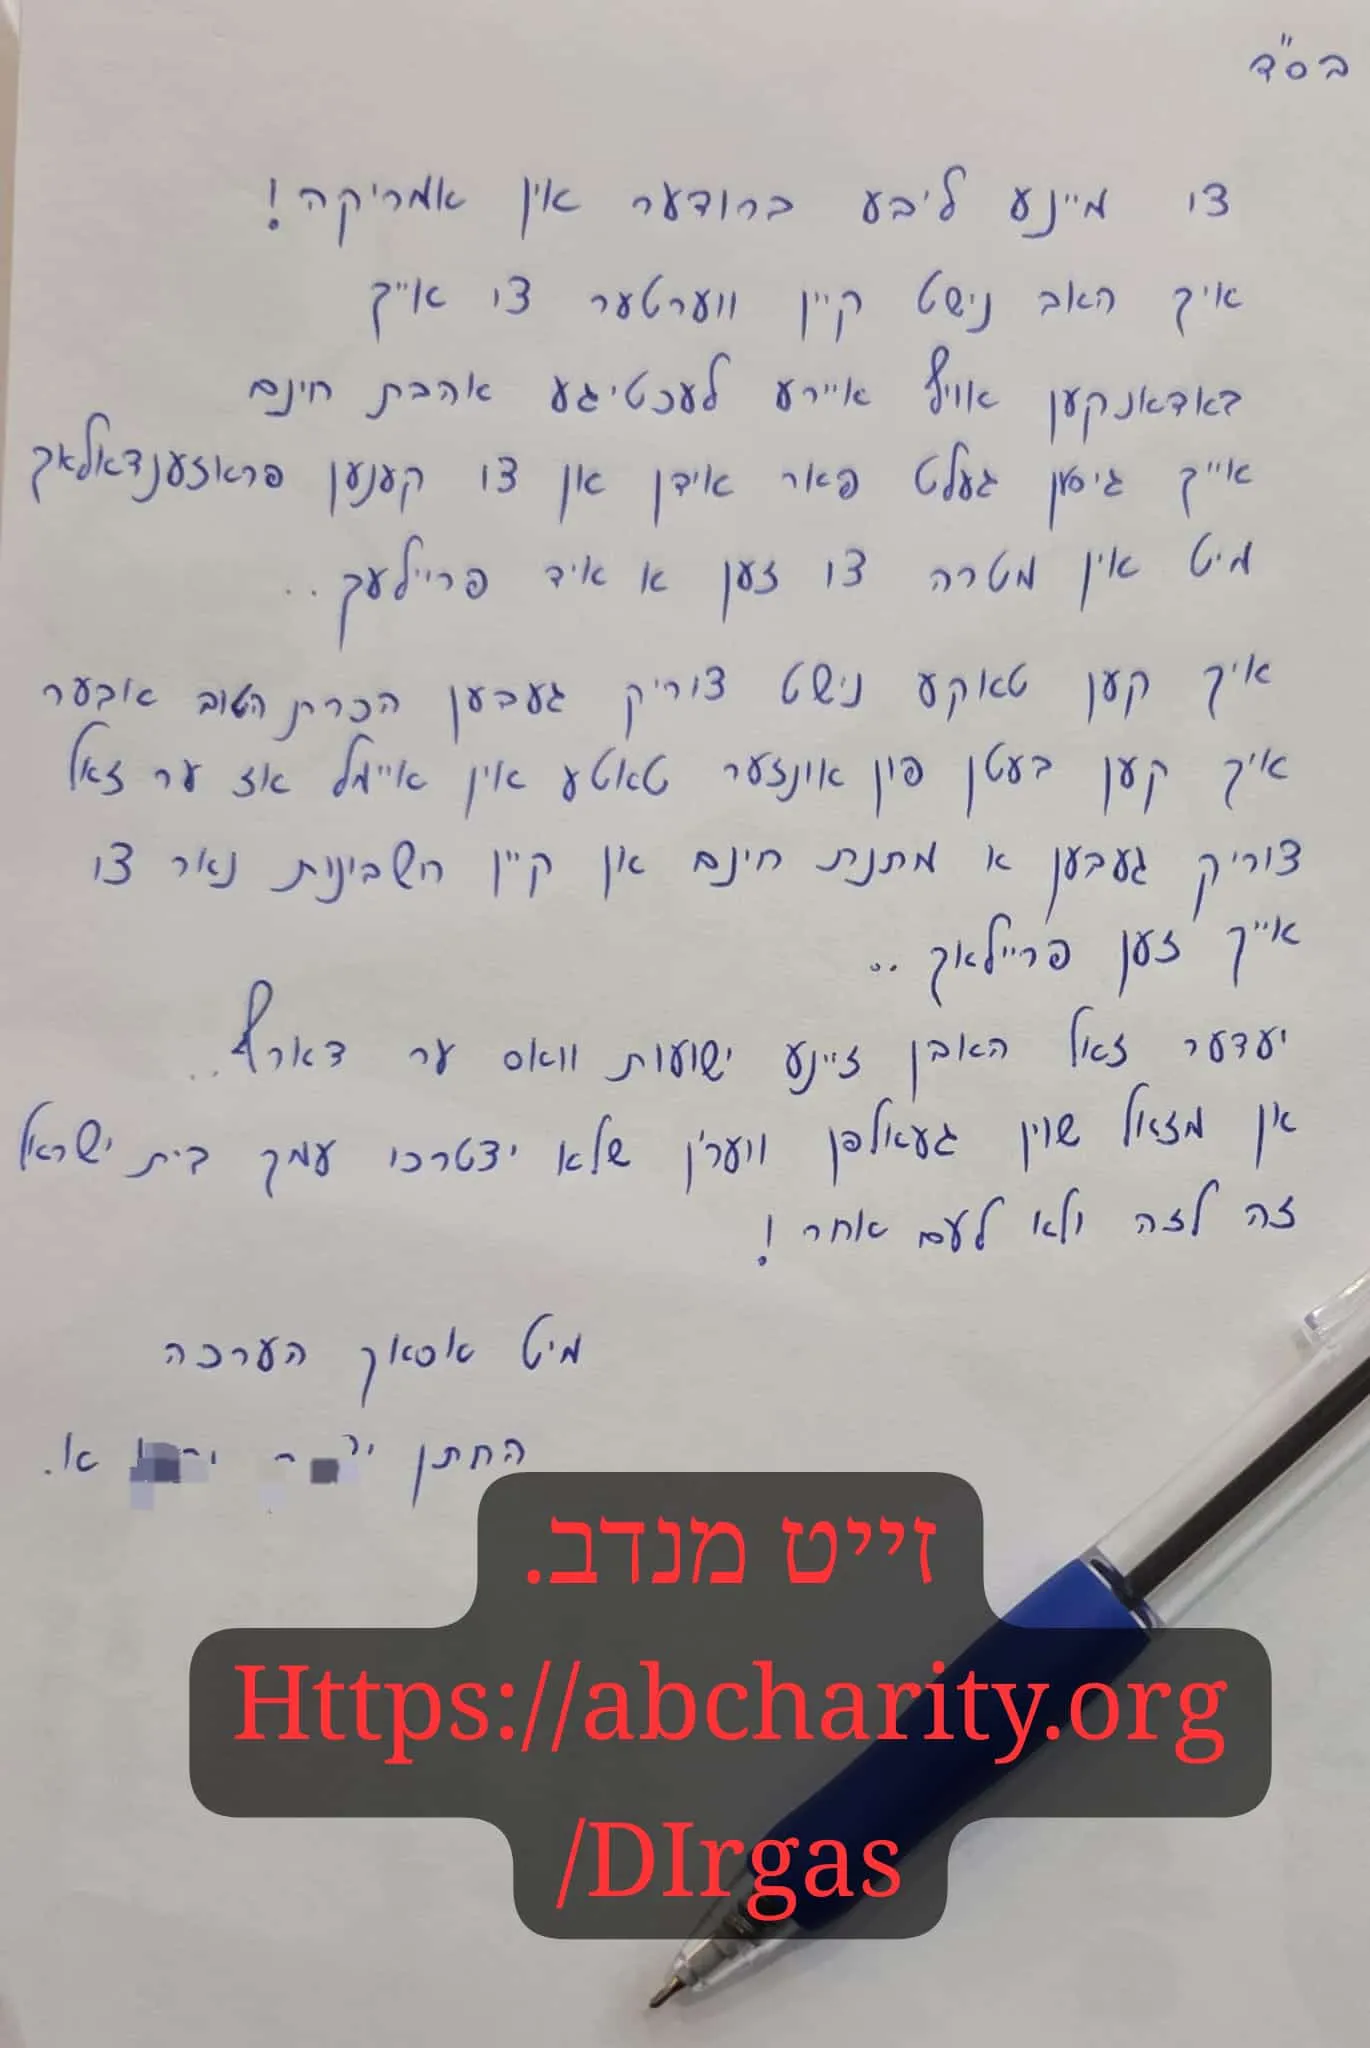 בס"ד
צו מיינע ליבע ברודער אין אמריקה!
איך האב נישט קיין ווערטער צו אייך
באדאנקען אויף איירע לעכטיגע אהבת חינם
אייך גיסן געלט פאר אידן און צו קענען
מיט אין מטרה צו זען א איד פריילעך..
איך קען טאקע נישט צוריק געבען הכרת הטוב אבער
איך קען בעטן פין אונזער טאטע אין איימל אז ער זאל
צוריק געבען א מתנת חינם און קיין חשבינות נאר צו
אייך זען פריילאך..
יעדער זאל האבן זיינע ישועות וואס ער דארף..
און מזאל שוין געאלפן ווער'ן שלא יצטרכו עמך בית ישראל
זה לזה ולא לעם אחר!
מיט אסאך הערכה
החתן א.
זייט מנדב.
Https://abcharity.org
/DIrgas